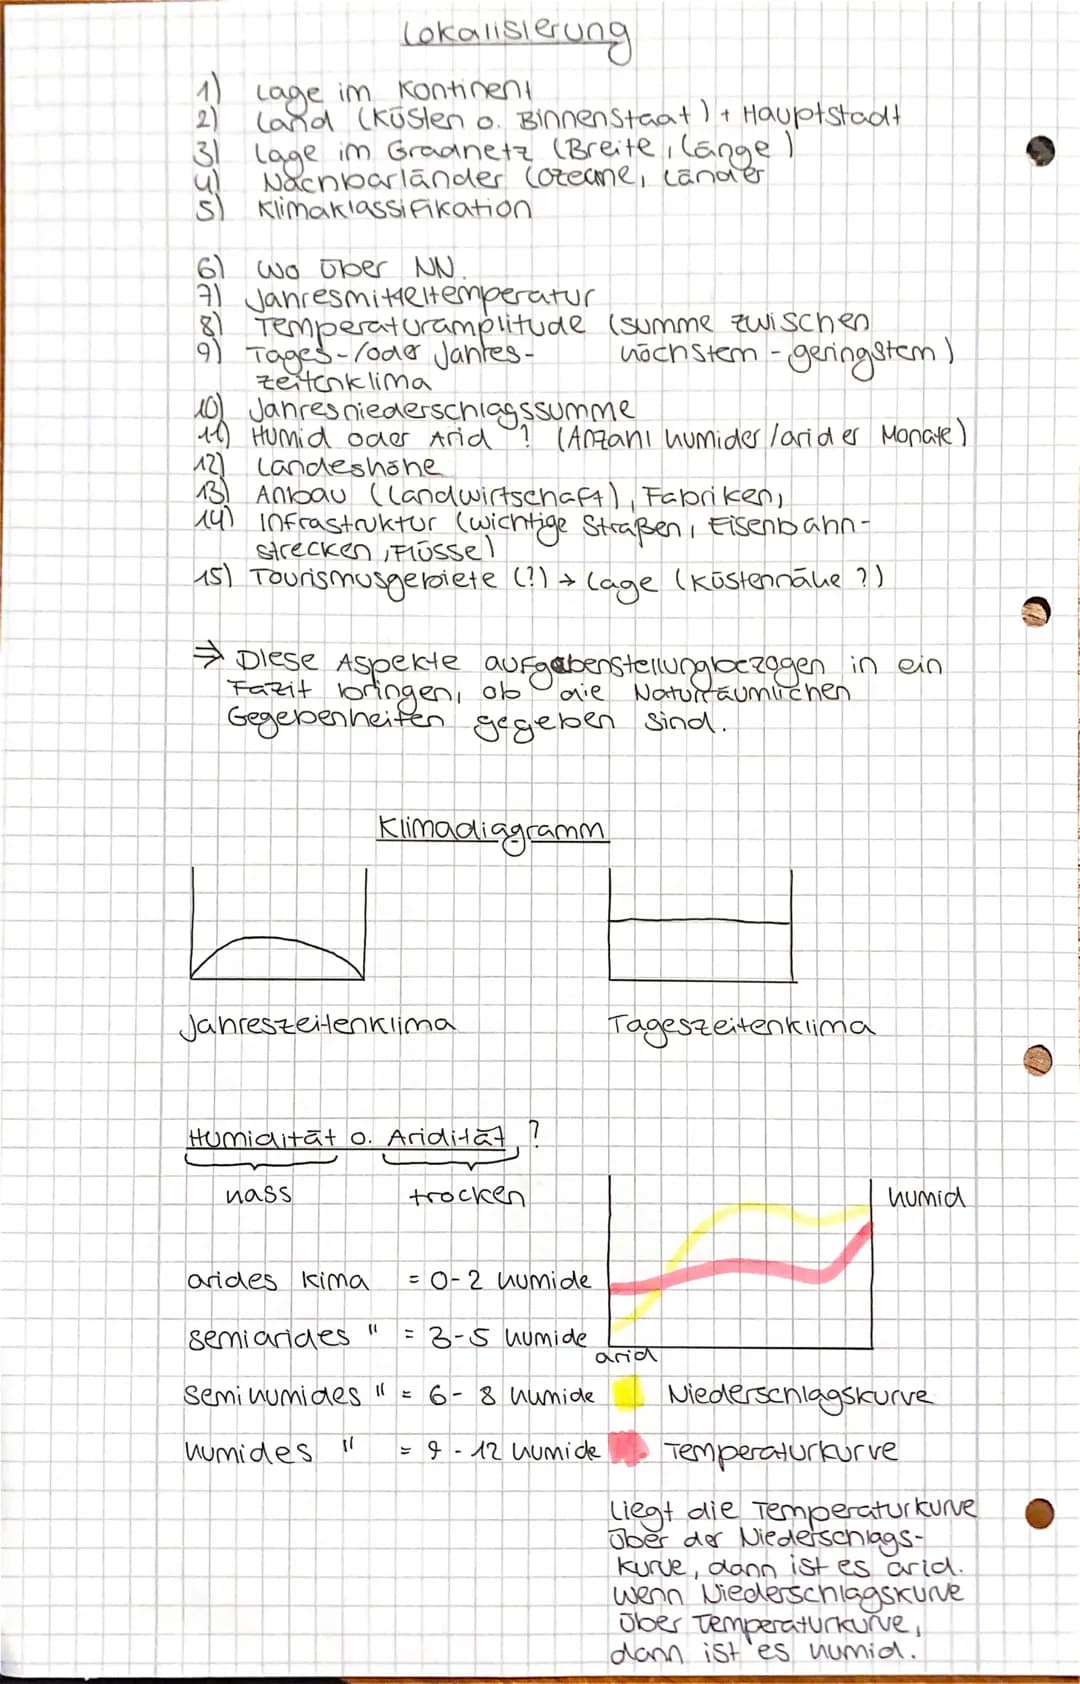 Lokalisierung
1) Lage im Kontinent
2) Land (Küsten o. Binnenstaat) + Hauptstadt
3) Lage im Gradnetz (Breite, Länge)
4) Nachbarländer (Ozeane, Länder
5) Klimaklassifikation
6) Wo über NN.
7) Jahresmitteltemperatur
8) Temperaturamplitude (summe zwischen
höchstem - geringstem)
9) Tages-/oder Jahres-
zeitenklima
10) Jahresniederschlagssumme
11) Humid oder Arid ? (Anzahl humider/arider Monate)
12) Landeshöhe
13) Anbau (Landwirtschaft), Fabriken,
14) Infrastruktur (wichtige Straßen, Eisenbahn-
strecken, Flüsse)
15) Tourismusgebiete (?) → Lage (Küstennähe ?)
⇒ Diese Aspekte aufgabenstellungbezogen in ein
Fazit bringen, ob die Naturräumlichen
Gegebenheiten gegeben sind.
Klimadiagramm
Jahreszeitenklima
Tageszeitenklima
Humidität o. Aridität ?
nass trocken
humid
arides Kima = 0-2 humide
semiarides " = 3-5 humide
arid
semihumides " = 6-8 humide
humides " = 9-12 humide
Niederschlagskurve
Temperaturkurve
Liegt die Temperaturkurve
über der Niederschlags-
kurve, dann ist es arid.
Wenn Niederschlagskurve
über Temperaturkurve,
dann ist es humid.